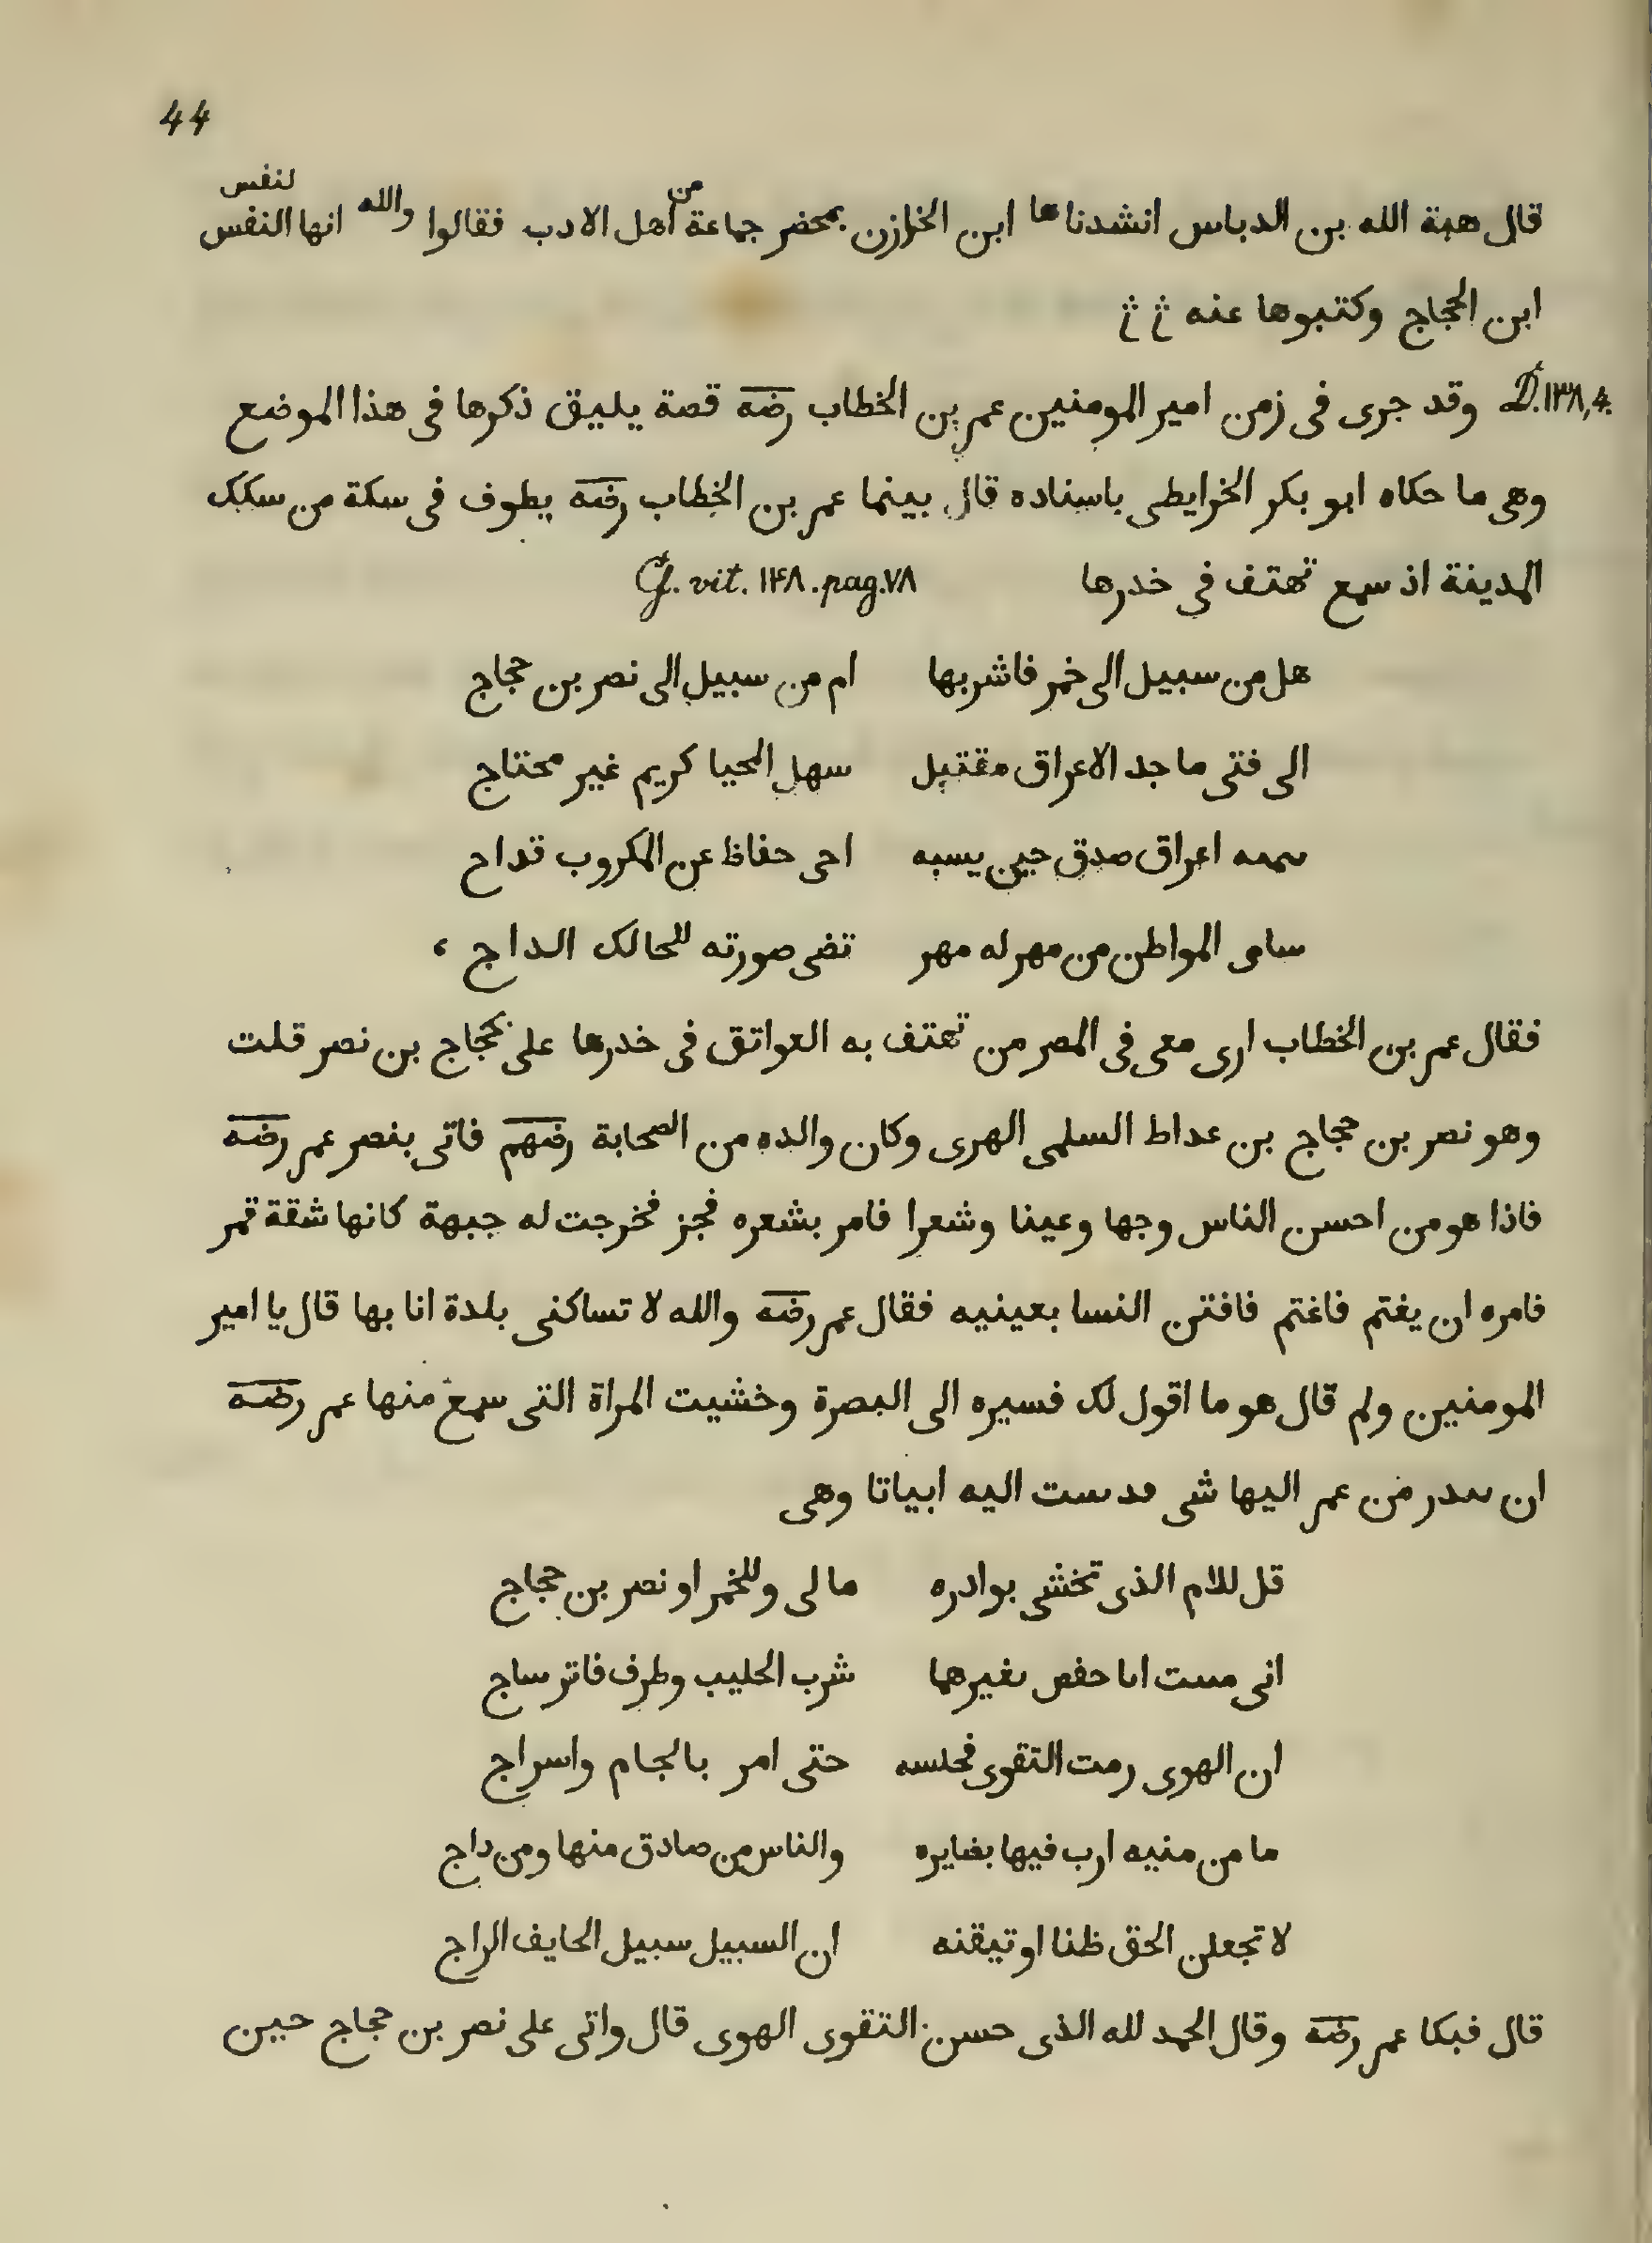 44
لنفس
قال هبة الله بن الدباس انشدناها ابن الخازن بمحضر جماعة من اهل الادب فقالوا والله انها النفس
ابن الحجاج وكتبوها عنه
D. ١٣٨, 4. وقد جرى فى زمن امير المومنين عمر بن الخطاب رضه قصة يليق ذكرها فى هذا الموضع
وهى ما حكاه ابو بكر الخرايطى باسناده قال بينما عمر بن الخطاب رضه يطوف فى سكة من سكك
المدينة اذ سمع تهتف فى خدرها Cf. vit. ١٤٨. pag. ٧٨
هل من سبيل الى خمر فاشربها ام من سبيل الى نصر بن حجاج
الى فتى ماجد الاعراق مقتبل سهل المحيا كريم غير محتاج
اعراق صدق حين يسبه اخى حفاظ عن المكروب قداح
سامى المواطن من مهر له مهر تضى صورته للحالك الداج
فقال عمر بن الخطاب ارى معى فى المصر من تهتف به العواتق فى خدرها على بحجاج بن نصر قلت
وهو نصر بن حجاج بن عداط السلمى الهرى وكان والده من الصحابة رضهم فاتى بنصر عمر رضه
فاذا هو من احسن الناس وجها وعينا وشعرا فامر بشعره فجز فخرجت له جبهة كانها شقة قمر
فامره ان يغتم فاغتم فافتن النسا بعينيه فقال عمر رضه والله لا تساكنى بلدة انا بها قال يا امير
المومنين ولم قال هو ما اقول لك فسيره الى البصرة وخشيت المراة التى سمع منها عمر رضه
ان من عمر اليها شى اليه ابياتا وهى
قل للام الذى تخشى بوادره ما لى وللخمر او نصر بن حجاج
انى حفص بغيرهما شرب الحليب وطرف فاتر ساج
ان الهوى رمت التقوى حتى امر بالجام واسراج
ما من منيه ارب فيها بضايره والناس من صادق منها ومن داج
لا تجعلن الحق ظنا او تيقنه ان السبيل سبيل الحايف الراج
قال فبكا عمر رضه وقال الحمد لله الذى حسن التقوى الهوى قال واتى على نصر بن حجاج حين